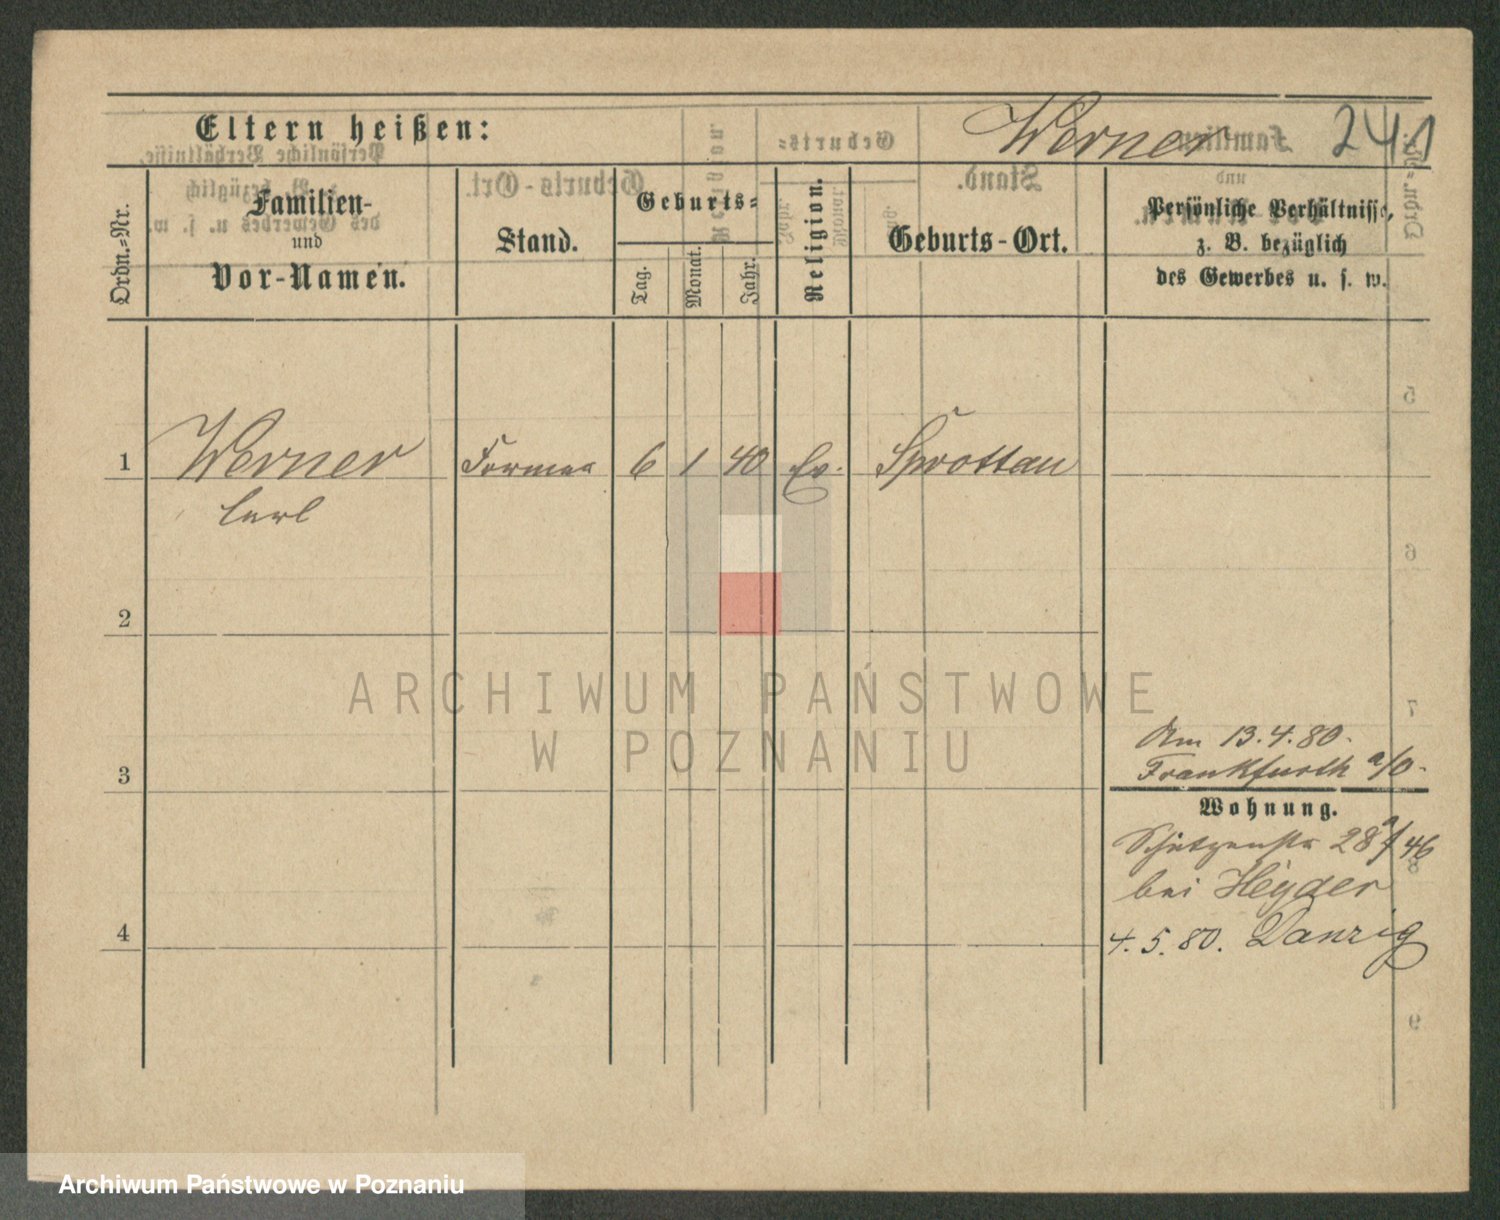 Eltern heißen:
Werner 241
Ordn.=Nr.
Familien-
und
Vor-Namen.
Stand.
Geburts=
Tag.
Monat.
Jahr.
Religion.
Geburts-Ort.
Persönliche Verhältnisse,
z. B. bezüglich
des Gewerbes u. s. w.
1 Werner Former 6 1 40 Ev. Sprottau
Carl
2
3
4
ARCHIWUM PAŃSTWOWE
W POZNANIU
Am 13.4.80.
Frankfurth a/O.
Wohnung.
Schützenstr 28a/46
bei Heyder
4.5.80. Danzig
Archiwum Państwowe w Poznaniu